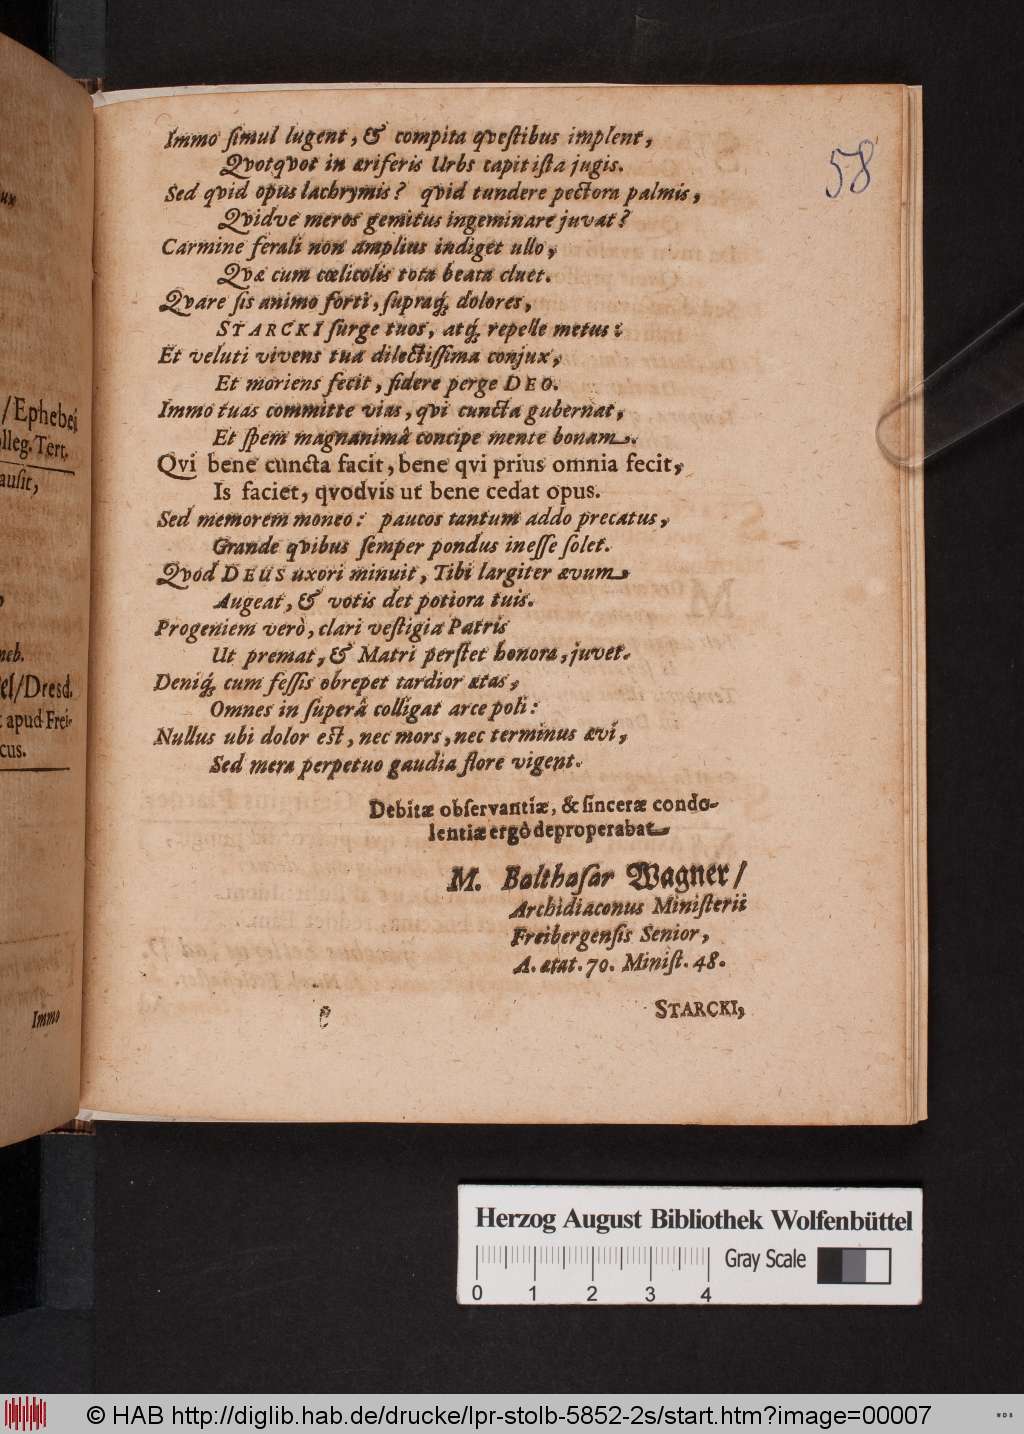 ux
/Ephebei
olleg. Tert.
ausit,
neb.
el/Dresd.
t apud Frei-
cus.
Immo
58
Immo ſimul lugent, & compita qveſtibus implent,
Qvotqvot in æriferis Urbs capit iſta jugis.
Sed qvid opus lachrymis? qvid tundere pectora palmis,
Qvidve meros gemitus ingeminare juvat?
Carmine ferali non amplius indiget ullo,
Qvæ cum cœlicolis tota beata cluet.
Qvare ſis animo forti, ſupraq; dolores,
STARCKI ſurge tuos, atq; repelle metus:
Et veluti vivens tua dilectiſſima conjux,
Et moriens fecit, fidere perge DEO.
Immo tuas committe vias, qvi cuncta gubernat,
Et ſpem magnanimâ concipe mente bonam.
Qvi bene cuncta facit, bene qvi prius omnia fecit,
Is faciet, qvodvis ut bene cedat opus.
Sed memorem moneo: paucos tantum addo precatus,
Grande qvibus ſemper pondus ineſſe ſolet.
Qvod DEUS uxori minuit, Tibi largiter ævum
Augeat, & votis det potiora tuis.
Progeniem verò, clari veſtigia Patris
Ut premat, & Matri perſtet honora, juvet.
Deniq; cum feſſis obrepet tardior ætas,
Omnes in ſuperâ colligat arce poli:
Nullus ubi dolor eſt, nec mors, nec terminus ævi,
Sed mera perpetuo gaudia flore vigent.
Debitæ obſervantiæ, & ſinceræ condo-
lentiæ ergò deproperabat
M. Balthaſar Wagner/
Archidiaconus Miniſterii
Freibergenſis Senior,
A. ætat. 70. Miniſt. 48.
e
STARCKI,
Herzog August Bibliothek Wolfenbüttel
Gray Scale
0 1 2 3 4
© HAB http://diglib.hab.de/drucke/lpr-stolb-5852-2s/start.htm?image=00007